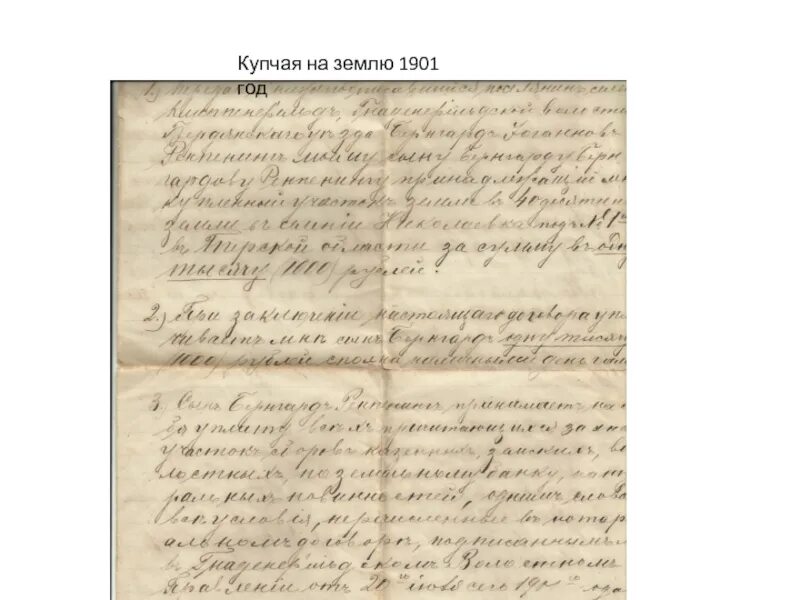 Купчая на землю 1901
год
1.)
Гнаденфельдской волости
Бердянскаго уѣзда Бернгардъ
Реппенингъ моему сыну Бернгарду Берн
гардову Реппенингу принадлежащій мнѣ
купленной участокъ земли въ 40 десятинъ
земли въ имѣніи Николаевка подъ № 1
въ Терской области за сумму въ одну
тысячу (1000) рублей.
2.) При заключеніи настоящаго договора упла
чиваетъ мнѣ сынъ Бернгардъ одну тысячу
(1000) рублей сполна наличный
3. Сынъ Бернгардъ Реппенингъ принимаетъ на
себя уплату всѣхъ причитающихся за
участокъ сборовъ казенныхъ, земскихъ, во
лостныхъ, поземельному банку,
ральныхъ повинностей, однимъ словомъ
всѣ условія, перечисленные въ
альномъ договорѣ, подписаннымъ
въ Гнаденфельдскомъ Волостномъ
Правленіи отъ 20 года